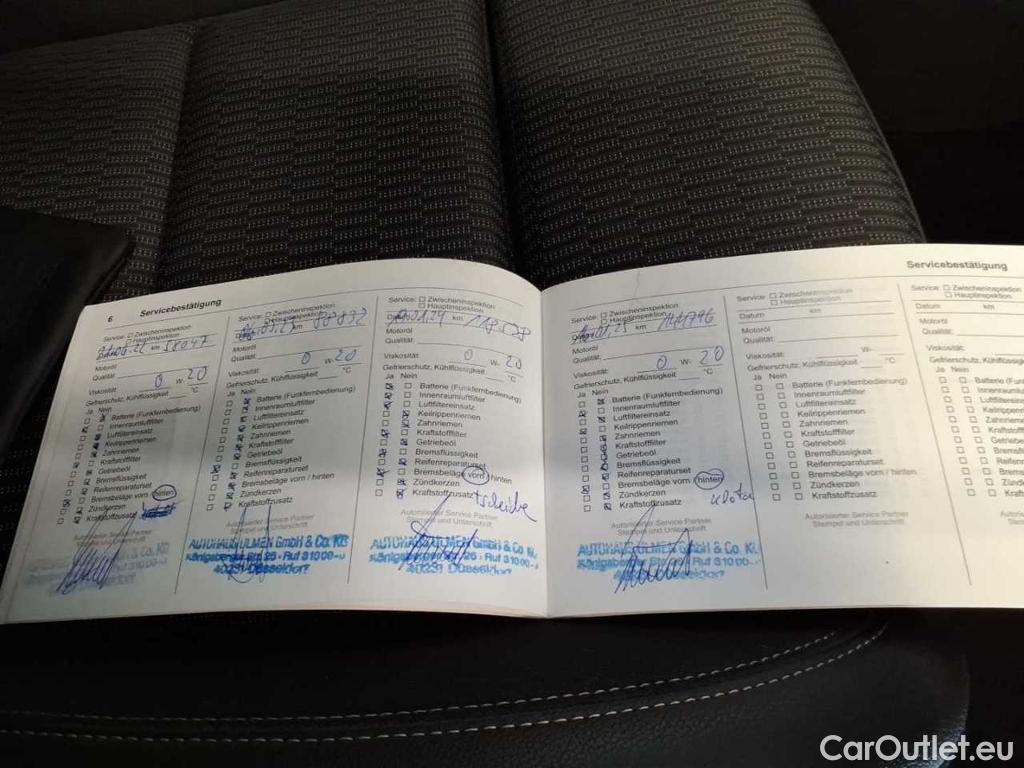 6 Servicebestätigung
☐ Zwischeninspektion
☐ Hauptinspektion
km 58047
Motoröl
Qualität:
Viskosität: 0 W- 20
Gefrierschutz, Kühlflüssigkeit °C
Ja Nein
Batterie (Funkfernbedienung)
Innenraumluftfilter
Luftfiltereinsatz
Keilrippenriemen
Zahnriemen
Kraftstofffilter
Getriebeöl
Bremsflüssigkeit
Reifenreparaturset
Bremsbeläge vorn / hinten
Zündkerzen
Kraftstoffzusatz
Autorisierter Service Partner
Stempel und Unterschrift
Service: ☐ Zwischeninspektion
☐ Hauptinspektion
km 88892
Motoröl
Qualität:
Viskosität: 0 W- 20
Gefrierschutz, Kühlflüssigkeit °C
Ja Nein
Batterie (Funkfernbedienung)
Innenraumluftfilter
Luftfiltereinsatz
Keilrippenriemen
Zahnriemen
Kraftstofffilter
Getriebeöl
Bremsflüssigkeit
Reifenreparaturset
Bremsbeläge vorn / hinten
Zündkerzen
Kraftstoffzusatz
Autorisierter Service Partner
Stempel und Unterschrift
AUTOHAUS ULMEN GmbH & Co. KG
Königsberger Str. 26 · Ruf 31000-0
40231 Düsseldorf
Service: ☐ Zwischeninspektion
☐ Hauptinspektion
01.24 km
Motoröl
Qualität:
Viskosität: 0 W- 20
Gefrierschutz, Kühlflüssigkeit °C
Ja Nein
Batterie (Funkfernbedienung)
Innenraumluftfilter
Luftfiltereinsatz
Keilrippenriemen
Zahnriemen
Kraftstofffilter
Getriebeöl
Bremsflüssigkeit
Reifenreparaturset
Bremsbeläge vorn / hinten
Zündkerzen
Kraftstoffzusatz
Autorisierter Service Partner
Stempel und Unterschrift
AUTOHAUS ULMEN GmbH & Co. KG
Königsberger Str. 26 · Ruf 31000-0
40231 Düsseldorf
Servicebestätigung
Service: ☐ Zwischeninspektion
☐ Hauptinspektion
01.25 km 141796
Motoröl
Qualität:
Viskosität: 0 W- 20
Gefrierschutz, Kühlflüssigkeit °C
Ja Nein
Batterie (Funkfernbedienung)
Innenraumluftfilter
Luftfiltereinsatz
Keilrippenriemen
Zahnriemen
Kraftstofffilter
Getriebeöl
Bremsflüssigkeit
Reifenreparaturset
Bremsbeläge vorn / hinten
Zündkerzen
Kraftstoffzusatz
Autorisierter Service Partner
Stempel und Unterschrift
AUTOHAUS ULMEN GmbH & Co. KG
Königsberger Str. 26 · Ruf 31000-0
40231 Düsseldorf
Service: ☐ Zwischeninspektion
☐ Hauptinspektion
Datum km
Motoröl
Qualität:
Viskosität: W-
Gefrierschutz, Kühlflüssigkeit °C
Ja Nein
Batterie (Funkfernbedienung)
Innenraumluftfilter
Luftfiltereinsatz
Keilrippenriemen
Zahnriemen
Kraftstofffilter
Getriebeöl
Bremsflüssigkeit
Reifenreparaturset
Bremsbeläge vorn / hinten
Zündkerzen
Kraftstoffzusatz
Autorisierter Service Partner
Stempel und Unterschrift
Service: ☐ Zwischeninspektion
☐ Hauptinspektion
Datum
Motoröl
Qualität:
Viskosität:
Ja Nein
CarOutlet.eu